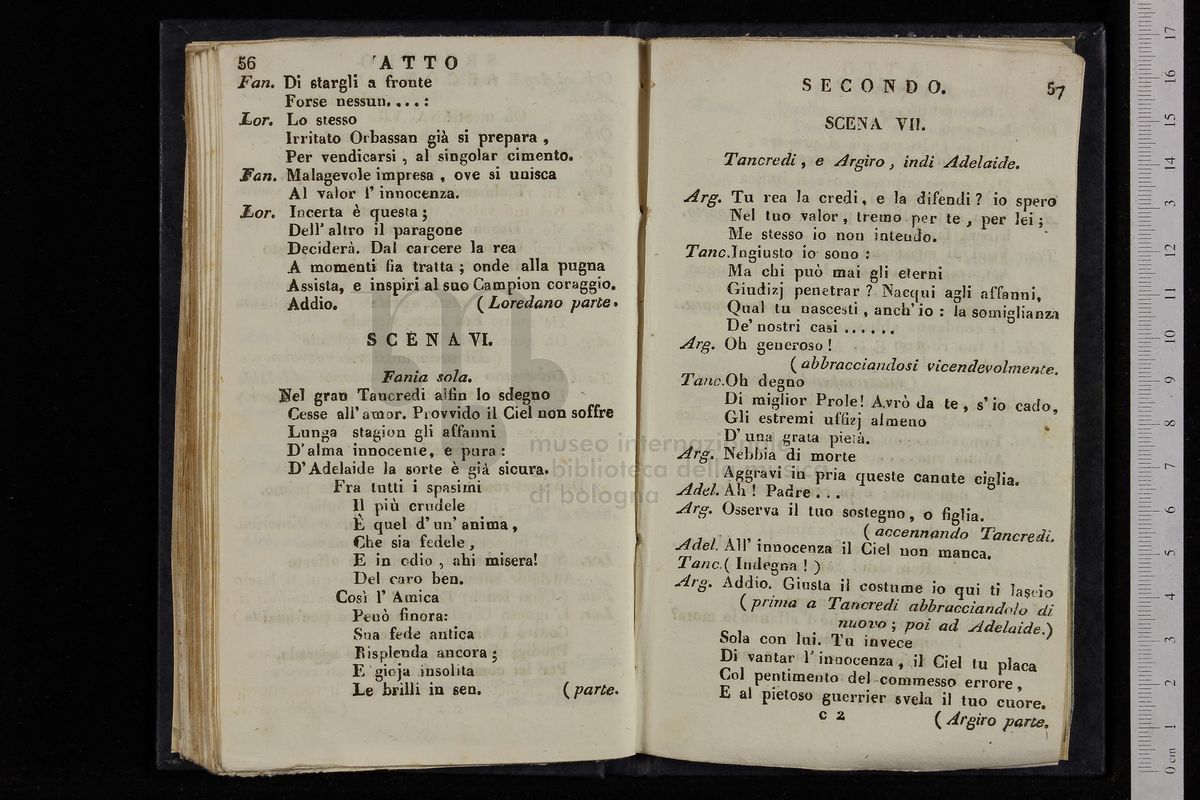 56 'ATTO
Fan. Di stargli a fronte
Forse nessun....:
Lor. Lo stesso
Irritato Orbassan già si prepara ,
Per vendicarsi , al singolar cimento.
Fan. Malagevole impresa , ove si unisca
Al valor l' innocenza.
Lor. Incerta è questa ;
Dell' altro il paragone
Deciderà. Dal carcere la rea
A momenti fia tratta ; onde alla pugna
Assista, e inspiri al suo Campion coraggio.
Addio. ( Loredano parte.
SCENA VI.
Fania sola.
Nel gran Tancredi alfin lo sdegno
Cesse all' amor. Provvido il Ciel non soffre
Lunga stagion gli affanni
D' alma innocente, e pura :
D' Adelaide la sorte è già sicura.
Fra tutti i spasimi
Il più crudele
È quel d' un' anima ,
Che sia fedele ,
E in odio , ahi misera!
Del caro ben.
Così l' Amica
Penò finora:
Sua fede antica
Risplenda ancora ;
E gioja insolita
Le brilli in sen. ( parte.
SECONDO. 57
SCENA VII.
Tancredi , e Argiro , indi Adelaide.
Arg. Tu rea la credi, e la difendi? io spero
Nel tuo valor , tremo per te , per lei ;
Me stesso io non intendo.
Tanc. Ingiusto io sono :
Ma chi può mai gli eterni
Giudizj penetrar ? Nacqui agli affanni,
Qual tu nascesti , anch' io : la somiglianza
De' nostri casi ......
Arg. Oh generoso !
( abbracciandosi vicendevolmente.
Tanc. Oh degno
Di miglior Prole! Avrò da te , s' io cado,
Gli estremi uffizj almeno
D' una grata pietà.
Arg. Nebbia di morte
Aggravi in pria queste canute ciglia.
Adel. Ah ! Padre . . .
Arg. Osserva il tuo sostegno , o figlia.
( accennando Tancredi.
Adel. All' innocenza il Ciel non manca.
Tanc. ( Indegna ! )
Arg. Addio. Giusta il costume io qui ti lascio
( prima a Tancredi abbracciandolo di
nuovo ; poi ad Adelaide.)
Sola con lui. Tu invece
Di vantar l' innocenza , il Ciel tu placa
Col pentimento del commesso errore ,
E al pietoso guerrier svela il tuo cuore.
C 2 ( Argiro parte.
museo internazionale
biblioteca della musica
di bologna
0 cm 1 2 3 4 5 6 7 8 9 10 11 12 13 14 15 16 17